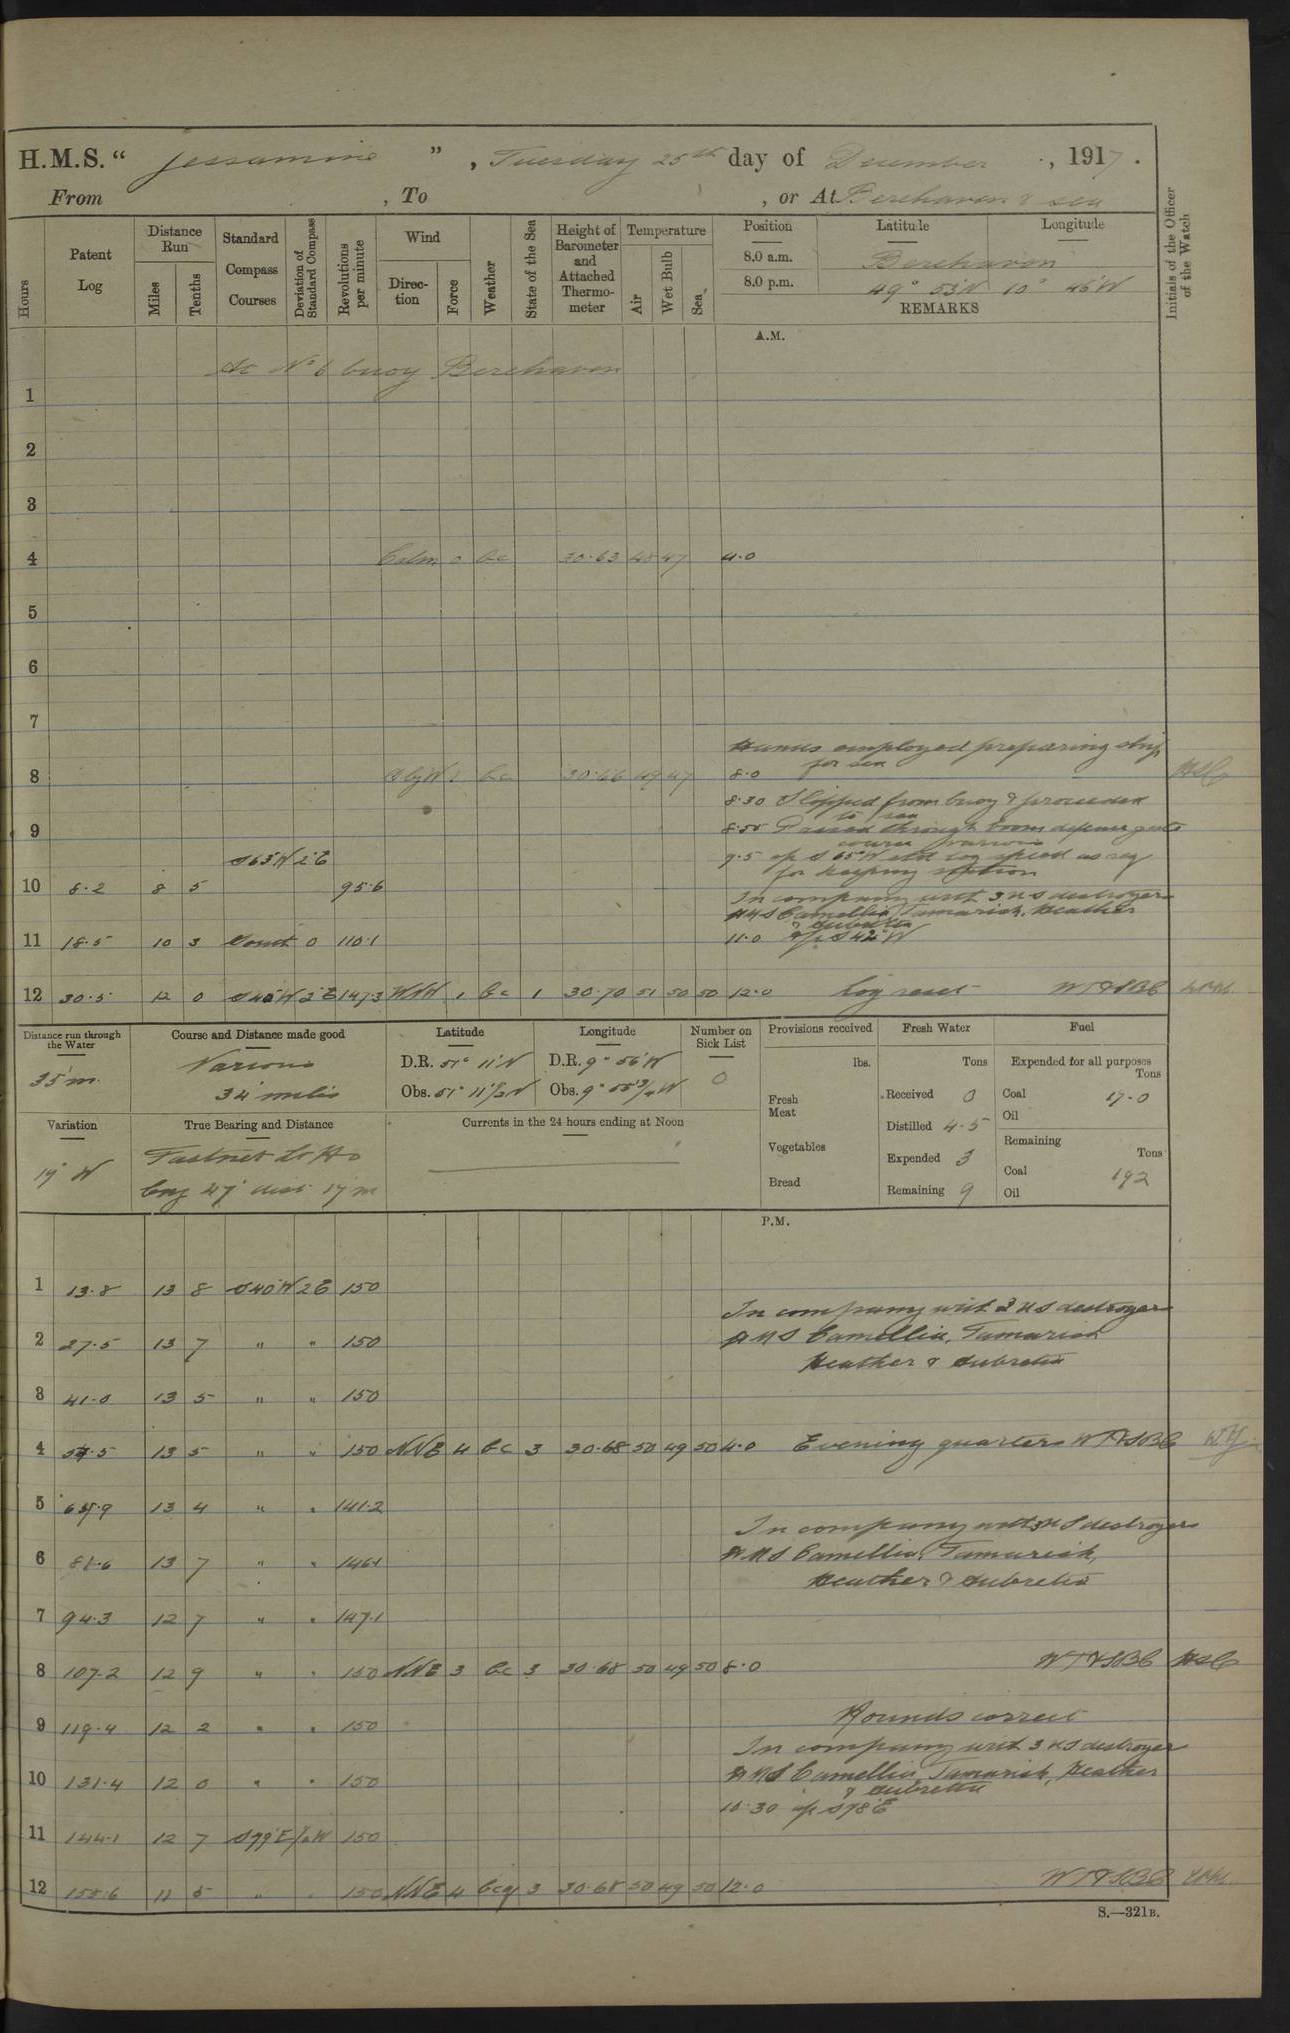 H.M.S. " Jessamine ", Tuesday 25th day of December, 1917.
From , To , or At Berehaven & sea
Hours
Patent Log
Distance Run
Miles
Tenths
Standard Compass Courses
Deviation of Standard Compass
Revolutions per minute
Wind
Direction
Force
Weather
State of the Sea
Height of Barometer and Attached Thermometer
Temperature
Air
Wet Bulb
Sea
Position Latitude Longitude
8.0 a.m. Berehaven
8.0 p.m. 49° 53'N 10° 46'W
REMARKS
Initials of the Officer of the Watch
A.M.
At No 6 buoy Berehaven
1
2
3
4 Calm 0 bc 30.63 48 47 4.0
5
6
7
Hands employed preparing ship
for sea
8 1 bc 30.66 49 47 8.0
8.30 Slipped from buoy & proceeded
to sea
9 8.55 Passed through boom defence gate
course various
S63W 2E 9.5 a/c S 65°W std log speed as req
for keeping station
10 8.2 8 5 95.6
In company with 3 US destroyers
HMS Camellia, Tamarisk, Heather
& Aubretia
11 18.5 10 3 0 110.1 11.0 a/c S 42°W
12 30.5 12 0 S40W 2E 147.3 1 bc 1 30.70 51 50 50 12.0 Log reset WT&SBC
Distance run through the Water
35 m.
Course and Distance made good
Various
34 miles
Latitude
D.R. 51° 11'N
Obs. 51° 11½N
Longitude
D.R. 9° 56'W
Obs. 9° 55¾W
Number on Sick List
0
Provisions received
lbs.
Fresh Meat
Vegetables
Bread
Fresh Water
Tons
Received 0
Distilled 4.5
Expended 3
Remaining 9
Fuel
Expended for all purposes
Tons
Coal 17.0
Oil
Remaining
Tons
Coal 192
Oil
Variation
19° W
True Bearing and Distance
Fastnet Lt Ho
brg 47° dist 19 m
Currents in the 24 hours ending at Noon
P.M.
1 13.8 13 8 S40W 2E 150
In company with 3 US destroyers
2 27.5 13 7 " " 150 HMS Camellia, Tamarisk
Heather & Aubretia
3 41.0 13 5 " " 150
4 54.5 13 5 " " 150 NNE 4 bc 3 30.68 50 49 50 4.0 Evening quarters WT&SBC
5 67.9 13 4 " " 141.2
In company with 3 US destroyers
6 81.6 13 7 " " 146.1 HMS Camellia, Tamarisk,
Heather & Aubretia
7 94.3 12 7 " " 147.1
8 107.2 12 9 " " 150 NNE 3 bc 3 30.68 50 49 50 8.0 WT&SBC
9 119.4 12 2 " " 150 Rounds correct
In company with 3 US destroyer
10 131.4 12 0 " " 150 HMS Camellia, Tamarisk, Heather
& Aubretia
10.30 a/c S78°E
11 144.1 12 7 S79°E ½W 150
12 155.6 11 5 " " 150 NNE 4 bcq 3 30.68 50 49 50 12.0 WT&SBC
S.—321B.